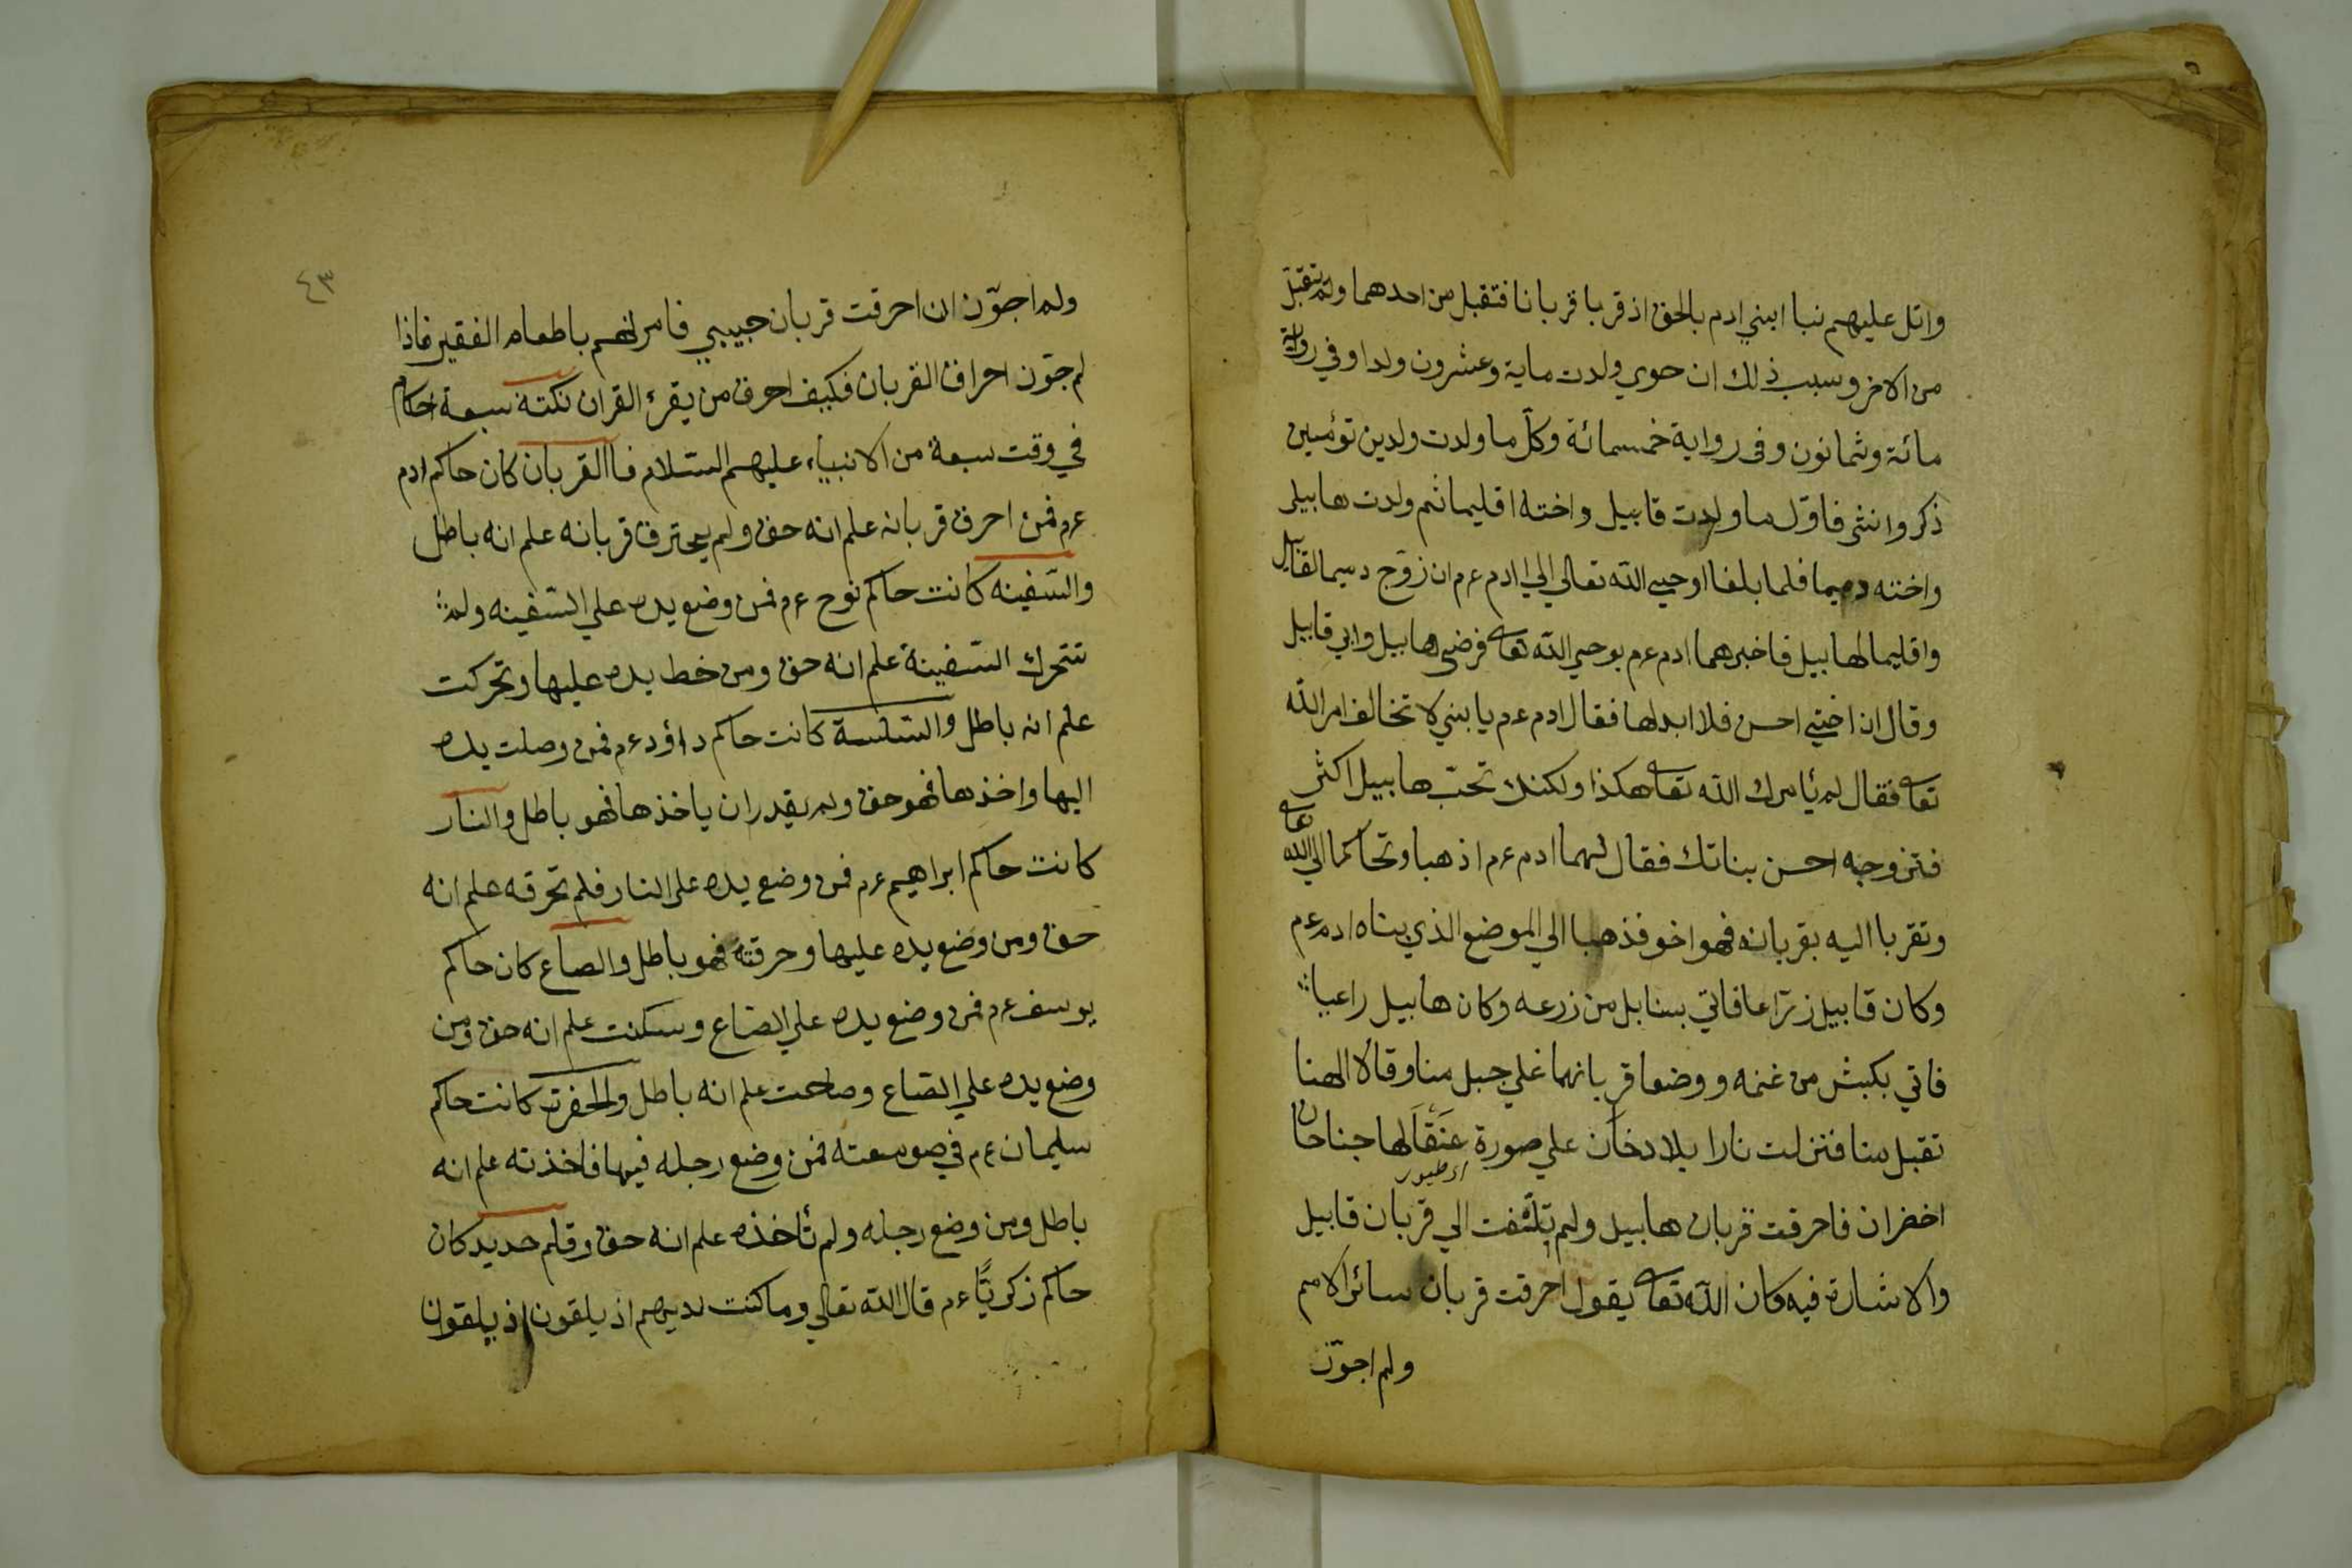 واتل عليهم نبا ابني ادم بالحق اذ قربا قربانا فتقبل من احدهما ولم يتقبل
من الاخر وسبب ذلك ان حوي ولدت ماية وعشرون ولدا وفي رواية
مائة وثمانون وفى رواية خمسمائة وكل ما ولدت ولدين توئمين
ذكر وانثى فاول ما ولدت قابيل واخته اقليما ثم ولدت هابيل
واخته دميما فلما بلغا اوحي الله تعالي الي ادم عم ان زوج دميما لقابيل
واقليما لهابيل فاخبرهما ادم عم بوحي الله تعا فرضي هابيل وابي قابيل
وقال ان اختي احسن فلا ابدلها فقال ادم عم يا بني لا تخالف امر الله
تعا فقال لم يأمرك الله تعا هكذا ولكنك تحب هابيل اكثر
فتزوجه احسن بناتك فقال لهما ادم عم اذهبا وتحاكما الي الله تعا
وتقربا اليه بقربانه فهو اخو فذهبا الي الموضع الذي بناه ادم عم
وكان قابيل زراعا فاتي بسنابل من زرعه وكان هابيل راعيا
فاتي بكبش من غنمه ووضعا قربانهما علي جبل منا وقالا الهنا
تقبل منا فتنزلت نارا بلا دخان علي صورة عنقا لها جناحان
اى طيور
اخضران فاحرقت قربان هابيل ولم تلتفت الي قربان قابيل
والاشارة فيه كان الله تعا يقول احرقت قربان سائر الامم
ولم اجوّز
٤٣
ولم اجوّز ان احرقت قربان حبيبي فامرلهم باطعام الفقير فاذا
لم جوّز احراق القربان فكيف احرق من يقرء القران نكتة سبعة احكام
في وقت سبعة من الانبياء عليهم السلام فاالقربان كان حاكم ادم
عم فمن احرق قربانه علم انه حق ولم يحترق قربانه علم انه باطل
والسفينه كانت حاكم نوح عم فمن وضع يده علي السفينه ولم
تتحرك السفينة علم انه حق ومن خط يده عليها وتحركت
علم انه باطل والسلسة كانت حاكم داؤد عم فمن وصلت يده
اليها واخذها فهو حق ولم يقدر ان ياخذها فهو باطل والنار
كانت حاكم ابراهيم عم فمن وضع يده على النار فلم تحرقه علم انه
حق ومن وضع يده عليها وحرقته فهو باطل والصاع كان حاكم
يوسف عم فمن وضع يده علي الصاع وسكنت علم انه حق ومن
وضع يده علي الصاع وصاحت علم انه باطل والحفرت كانت حاكم
سليمان عم في صومعته فمن وضع رجله فيها فاخذته علم انه
باطل ومن وضع رجله ولم تأخذه علم انه حق وقلم حديد كان
حاكم زكريّا عم قال الله تعالي وما كنت لديهم اذ يلقون اذ يلقون